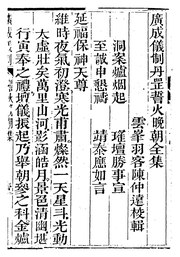 廣成儀制丹罡謷火晚朝全集
雲峯羽客陳仲遠校輯
洞案爐烟起　瑤壇勝事宣
至誠申懇禱　請泰應如言
延福保神天尊
維時夜氣初澄寒光甫肅燦然一天星斗光動
太虛壯矣萬里山河影涵皓月景邑清幽堪
行寅奉之禮謹儀振起乃舉朝參之科金爐